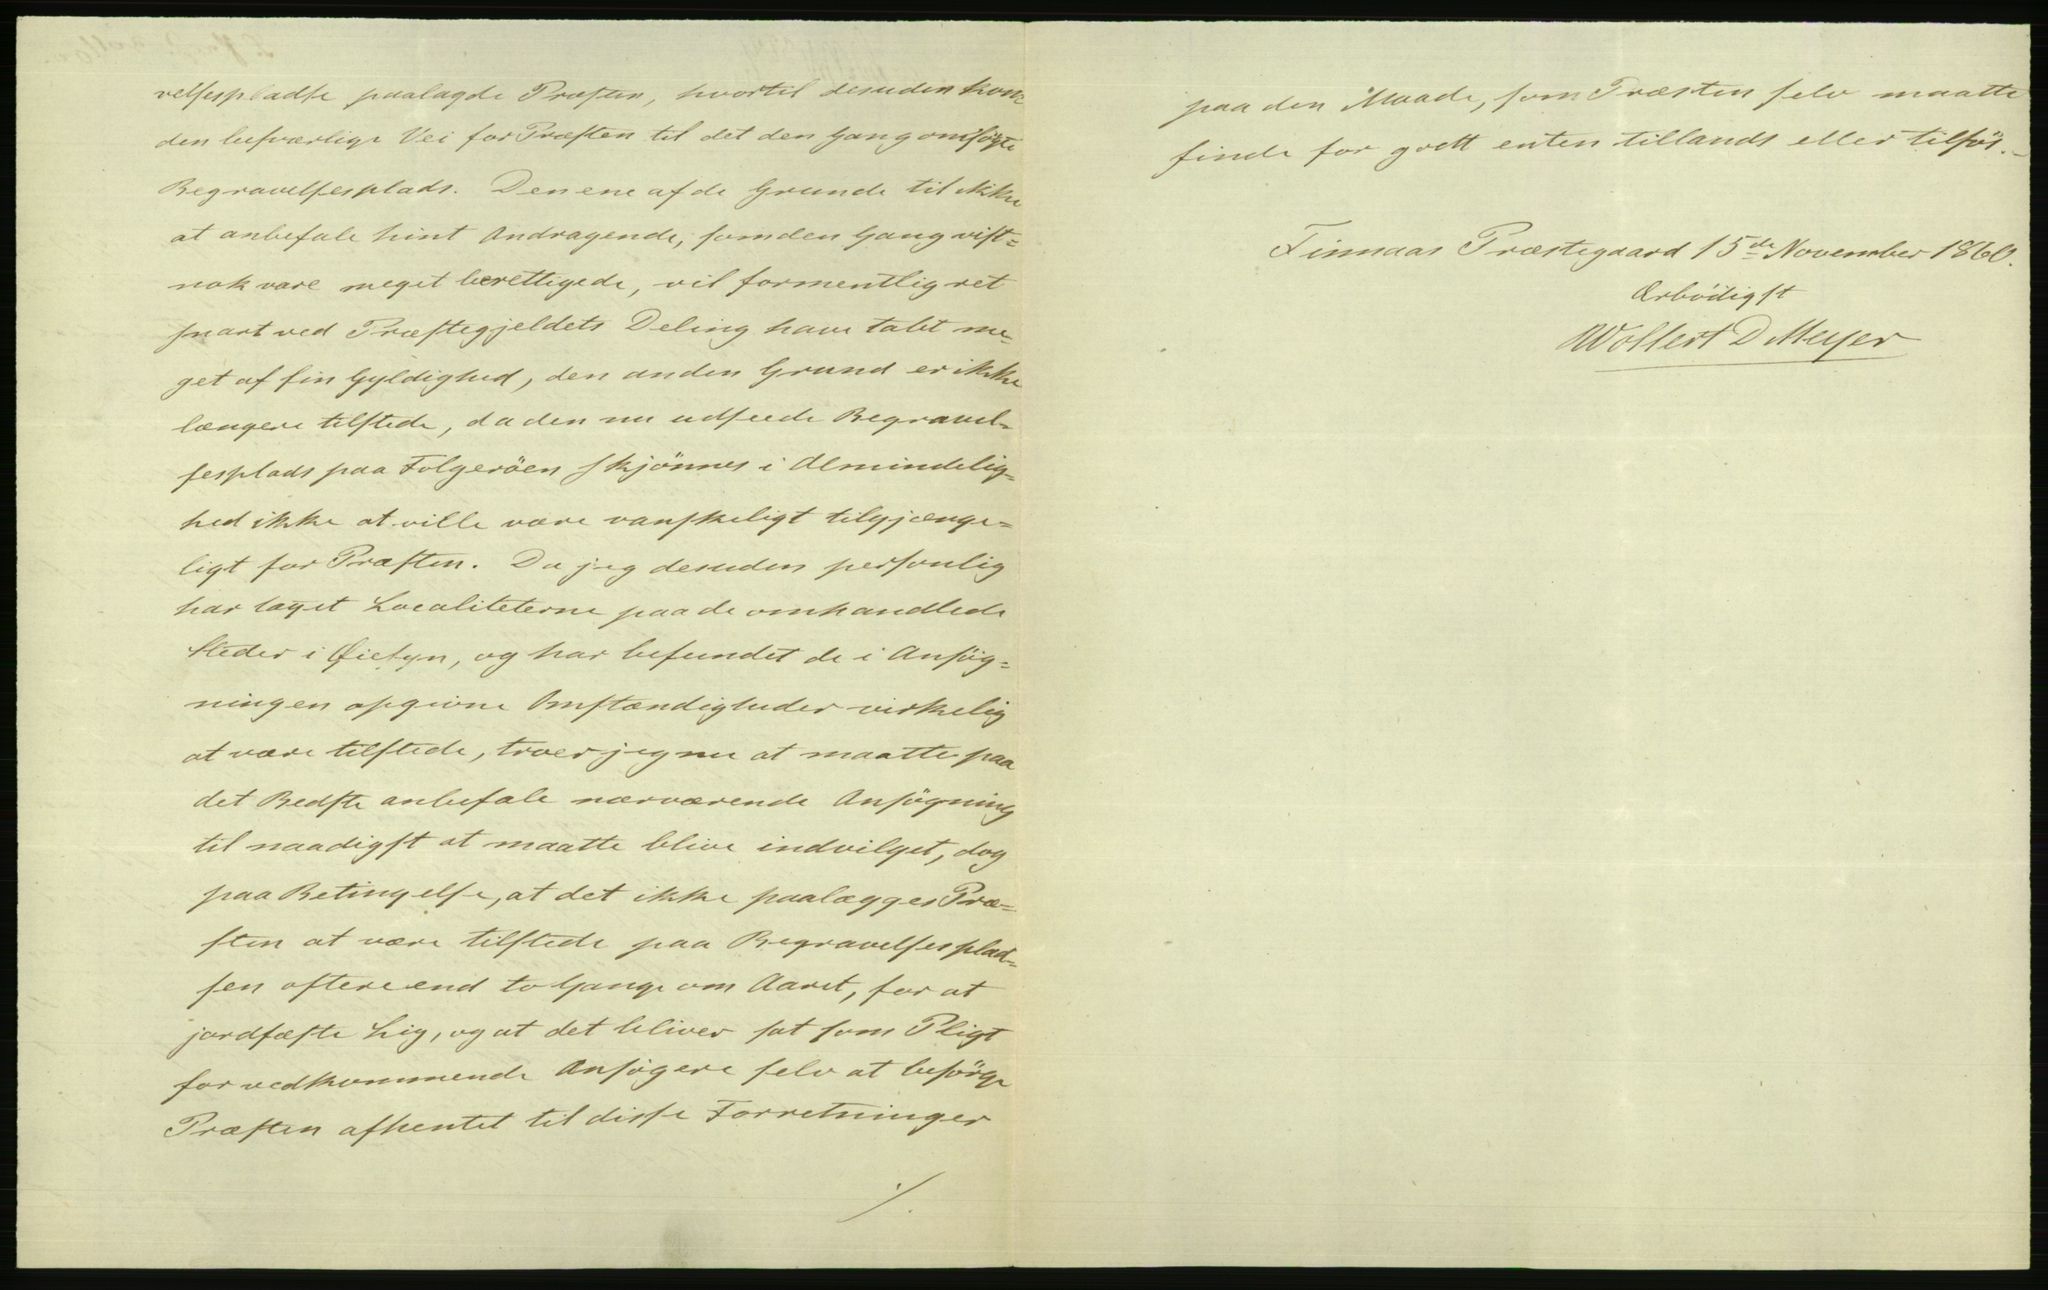 velsespladse paalagde Præsten, hvortil desuden kom
den besværlige Vei for Præsten til det den Gang omsögte
Begravelsesplads. Den ene af de Grunde til ikke
at anbefale hint Andragende, som den Gang vist=
nok vare meget berettigede, vil formentlig ret
snart ved Præstegjeldets Deling have tabt me=
get af sin Gyldighed, den anden Grund er ikke
længere tilstede, da den nu udseede Begravel=
sesplads paa Folgeröen skjönnes i Almindelig=
hed ikke at ville være vanskeligt tilgjænge=
ligt for Præsten. Da jeg desuden personlig
har taget Localiteterne paa de omhandlede
Steder i Øiesyn, og har befundet de i Ansög=
ningen opgivne Omstændigheder virkelig
at være tilstede, troer jeg nu at maatte paa
det Bedste anbefale nærværende Ansögning
til naadigst at maatte blive indvilget, dog
paa Betingelse, at det ikke paalægges Præ=
sten at være tilstede paa Begravelsesplad=
sen oftere end to Gange om Aaret, for at
jordfæste Lig, og at det bliver sat som Pligt
for vedkommende Ansögere selv at besörge
Præsten afhentet til disse Forretninger
./.
paa den Maade, som Præsten selv maatte
finde for godt enten tillands eller tilsös.-
Finnaas Præstegaard 15de November 1860.
Ærbödigst
Wollert D Meyer